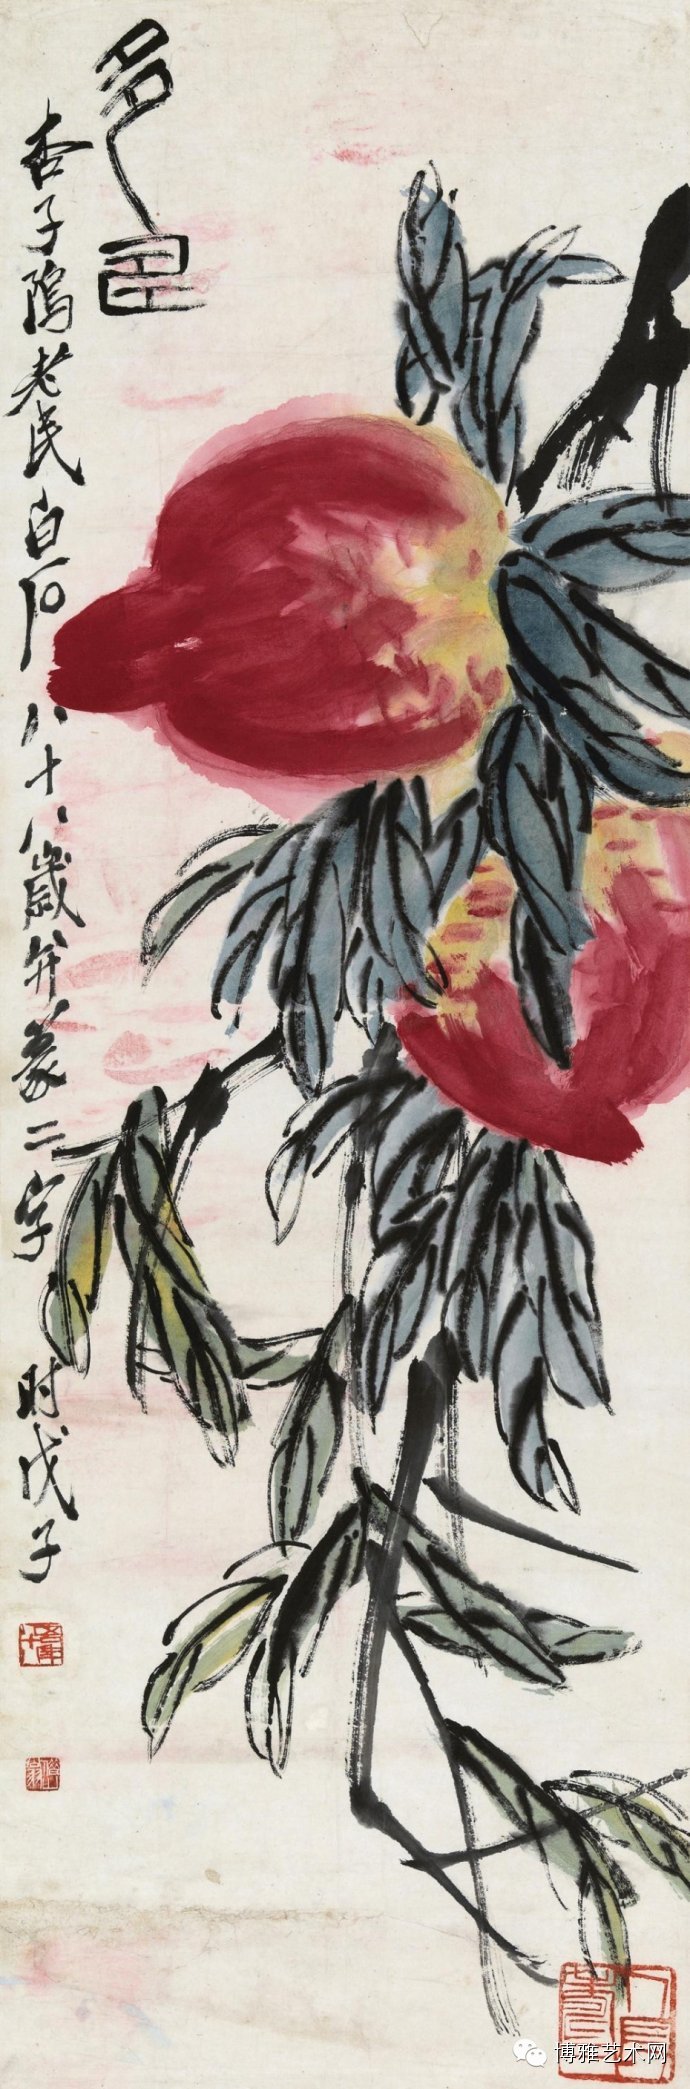 多
杏子隖老民白石八十八歲并篆二字 时戊子
人長壽
博雅艺术网